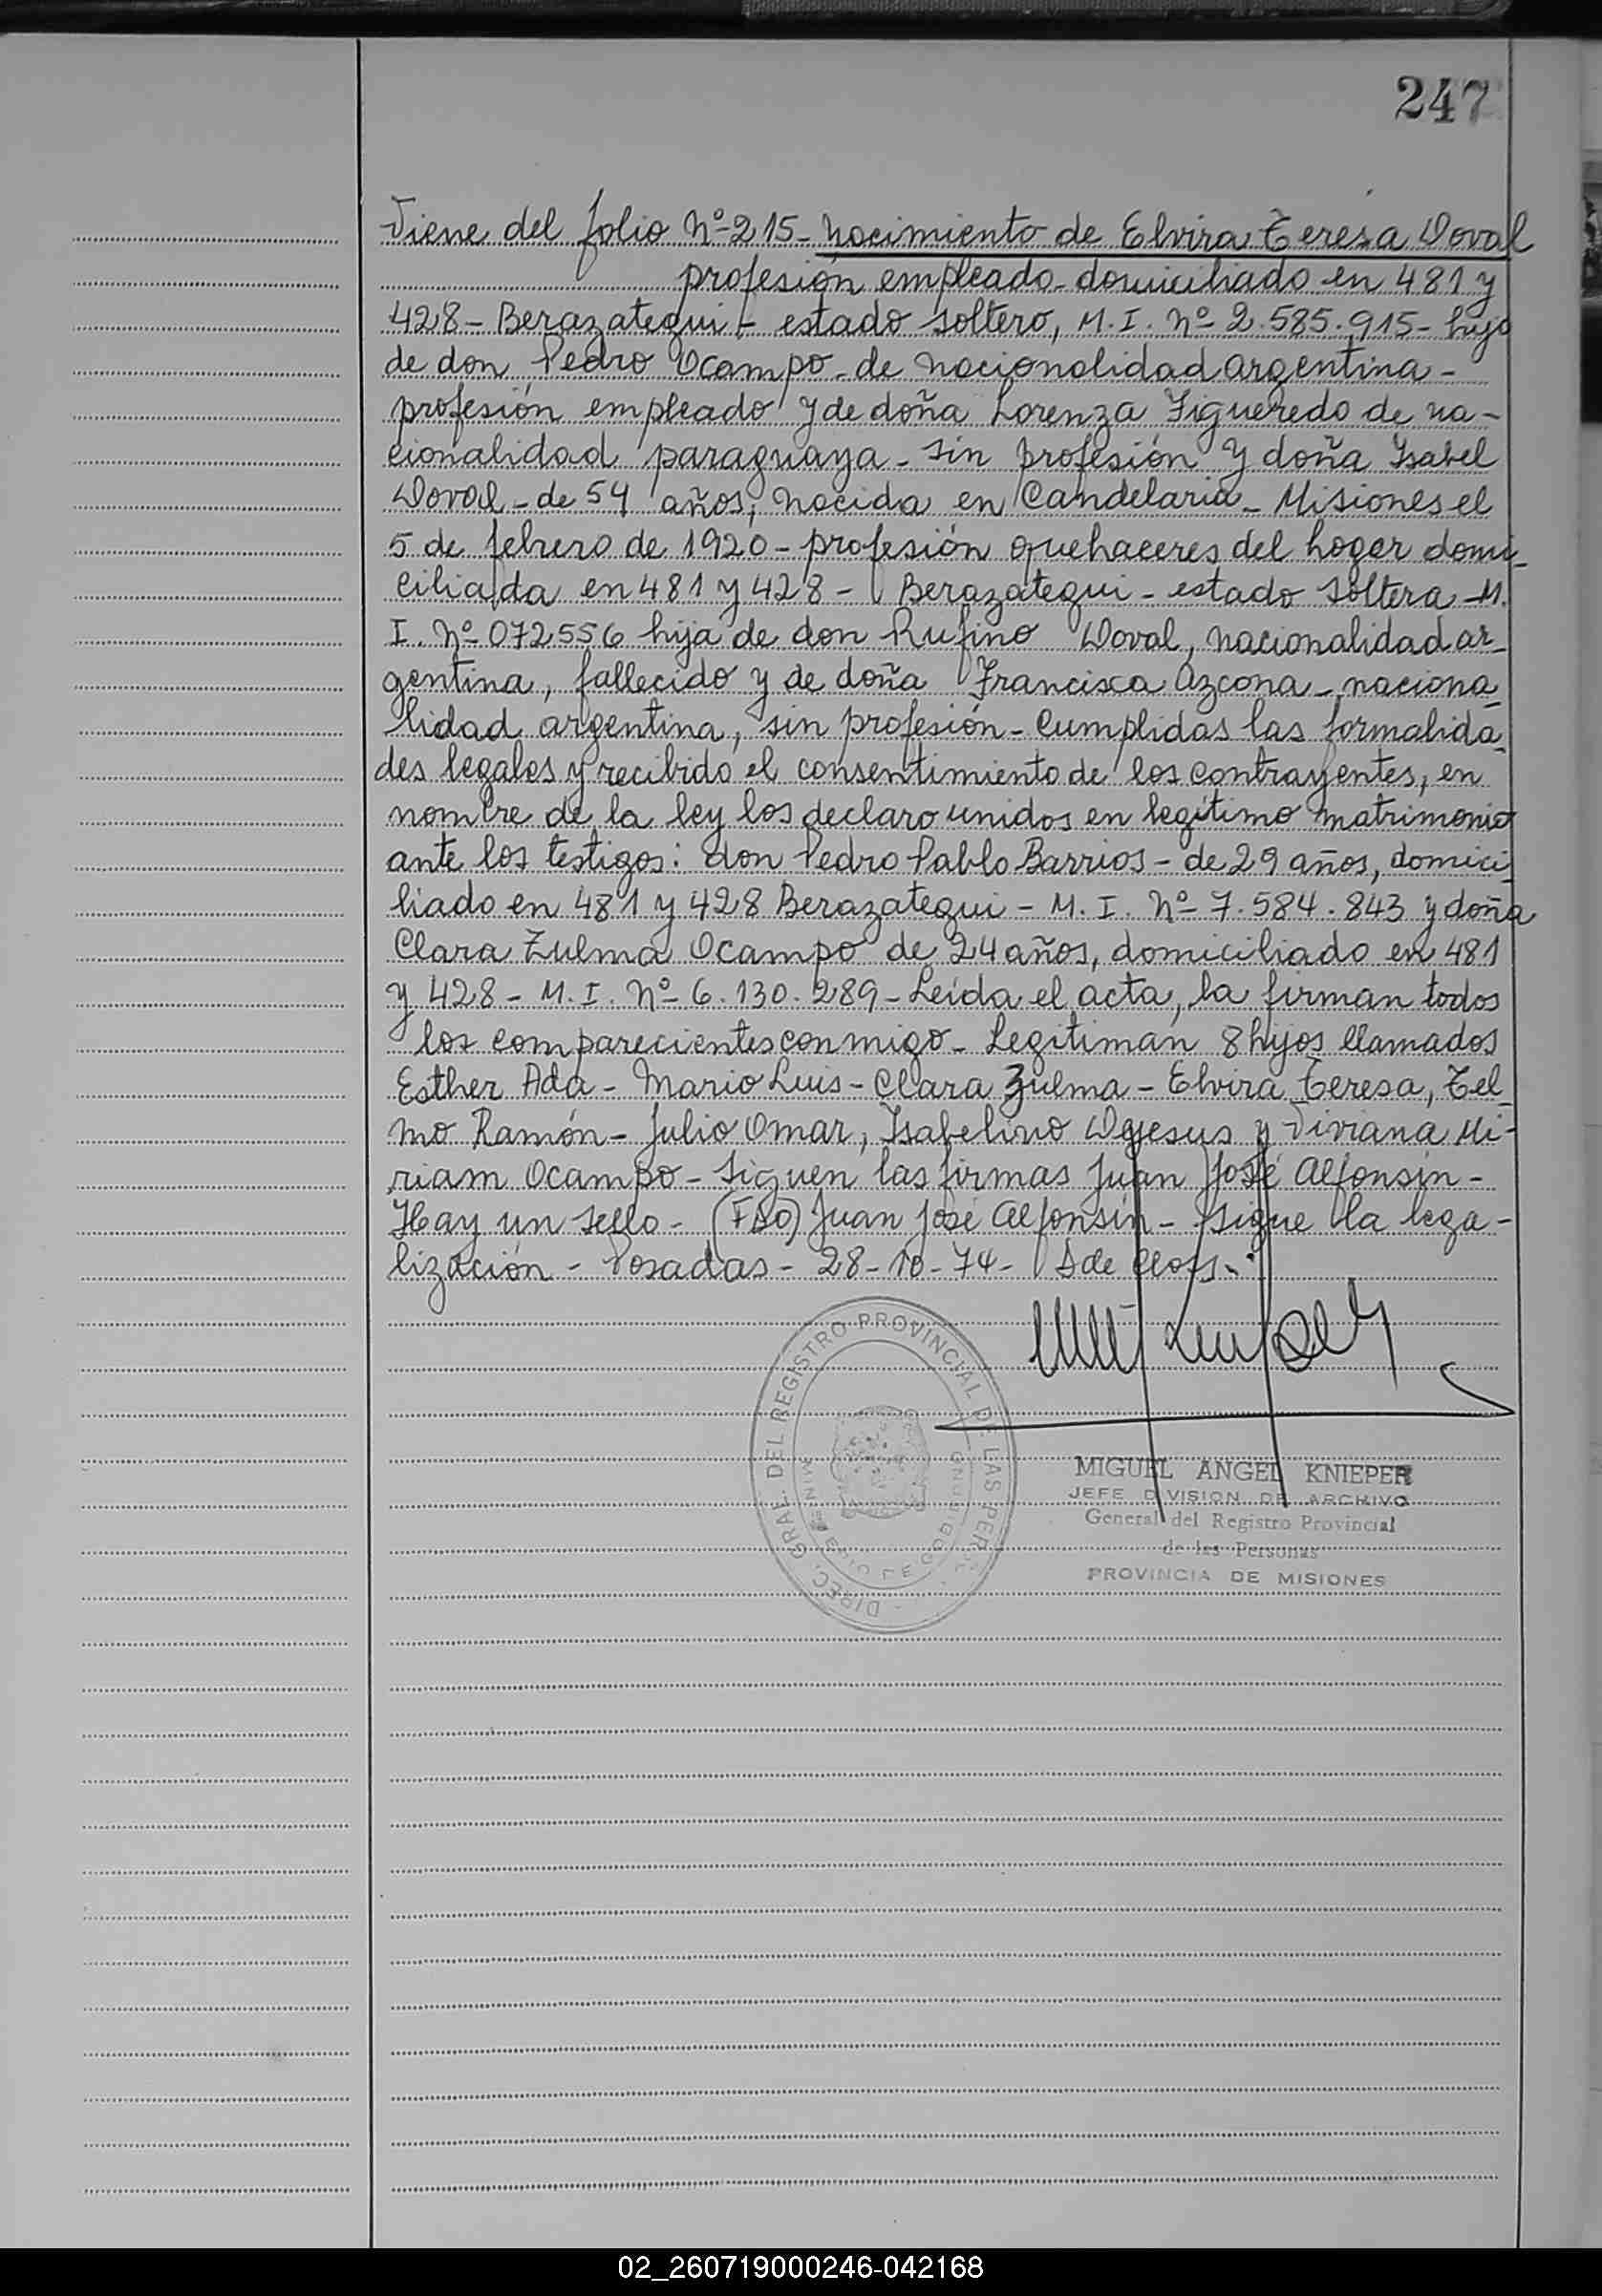 247
Viene del folio Nº 215 - Nacimiento de Elvira Teresa Doval
profesión empleado - domiciliado en 481 y
428 - Berazategui - estado soltero, M. I. Nº 2.585.915 - hijo
de don Pedro Ocampo - de nacionalidad argentina -
profesión empleado y de doña Lorenza Figueredo de na-
cionalidad paraguaya - sin profesión y doña Isabel
Doval - de 54 años, nacida en Candelaria - Misiones el
5 de febrero de 1920 - profesión quehaceres del hogar domi-
ciliada en 481 y 428 - Berazategui - estado soltera - M.
I. Nº 072556 hija de don Rufino Doval, nacionalidad ar-
gentina, fallecido y de doña Francisca Azcona - naciona-
lidad argentina, sin profesión - Cumplidas las formalida-
des legales y recibido el consentimiento de los contrayentes, en
nombre de la ley los declaro unidos en legítimo matrimonio
ante los testigos: don Pedro Pablo Barrios - de 29 años, domici-
liado en 481 y 428 Berazategui - M. I. Nº 7.584.843 y doña
Clara Zulma Ocampo de 24 años, domiciliado en 481
y 428 - M. I. Nº 6.130.289 - Leída el acta, la firman todos
los comparecientes conmigo - Legitiman 8 hijos llamados
Esther Ada - Mario Luis - Clara Zulma - Elvira Teresa, Tel-
mo Ramón - Julio Omar, Isabelino Dejesus y Viviana Mi-
riam Ocampo - Siguen las firmas Juan José Alfonsín -
Hay un sello - (FDO) Juan José Alfonsín - Sigue la lega-
lización - Posadas - 28-10-74 -
DIREC. GRAL. DEL REGISTRO PROVINCIAL DE LAS PERS.
MIGUEL ANGEL KNIEPER
JEFE DIVISION DE ARCHIVO
General del Registro Provincial
de las Personas
PROVINCIA DE MISIONES
02_260719000246-042168